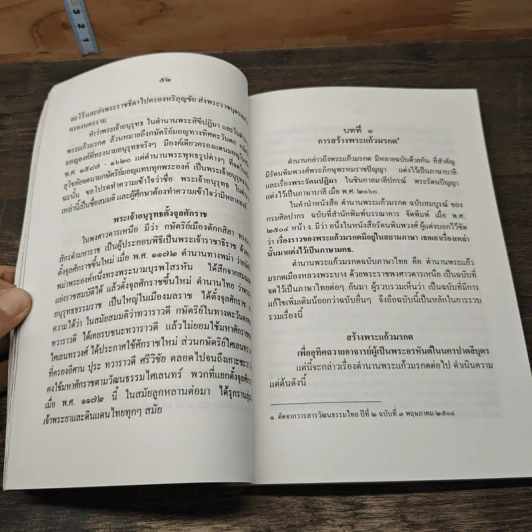 ๕๒
ละไว้และส่งพระราชธิดาไปครองหริภุญชัย ส่งพระราชบุตร
ครองนคราม
คำว่าพระเจ้าอนุรุทธ ในตำนานพระสิขีปฏิมา และใน
พระแก้วมรกต ล้วนหมายถึงกษัตริย์มอญทางทิศตะวันตก
มอญองค์ที่ทรงนามอนุรุทธจริงๆ มีองค์เดียวครองแดนมอญ
พ.ศ. ๑๕๘๗ - ๑๖๒๐ แต่ตำนานพระพุทธรูปต่างๆ ที่
สุโขทัยตกมานามกษัตริย์มอญแทบทุกพระองค์
ฉะนั้น ขอโปรดทำความเข้าใจว่าชื่อ พระเจ้าอนุรุทธ ใน
เหล่านี้เป็นชื่อสมมติ และผู้ศึกษาต้องทำความเข้าใจว่ามีหลาย
พระเจ้าอนุรุทธตั้งจุลศักราช
ในพงศาวดารเหนือ มีว่า กษัตริย์เมืองตักกสิลา
สักรดำมหาราช เป็นผู้ประกอบพิธีเป็นพระเจ้าราชาธิราช
ตั้งจุลศักราชขึ้นใหม่ เมื่อ พ.ศ. ๑๑๘๒ ตำนานทางพม่า
พม่าพระองค์หนึ่งทรงพระนามบุรพโสรหัน ได้สึกจาก
แย่งราชสมบัติได้ แล้วตั้งจุลศักราชขึ้นใหม่ ตำนานไทย
อนุรุทธธรรมราช เป็นใหญ่ในเมืองมลราช ได้ตั้งจุลศักราช
ความได้ว่า ในสมัยสมมติว่าทวาราวดี กษัตริย์ในทางตะวันตก
ทวาราวดี ได้เคยรบชนะทวาราวดี แล้วไม่ยอมใช้มหาศักราช
ไศเลนทรวงศ์ ได้ประกาศใช้ศักราชใหม่ ส่วนกษัตริย์ไศเลนทร์
ที่ครองอีศาน ปุระ ทวาราวดี ศรีวิชัย ตลอดไปจนถึงเกาะชวา
คงใช้มหาศักราชตามวัฒนธรรมไศเลนทร์ พวกที่แยกตั้งจุลศักราช
เมื่อ พ.ศ. ๑๑๘๒ นี้ ในสมัยลูกหลานต่อมา ได้รุกราน
เจ้าพระยาและดินแดนไทยทุกๆ สมัย
บทที่ ๑
การสร้างพระแก้วมรกต๑
ตำนานกล่าวถึงพระแก้วมรกต มีหลายฉบับด้วยกัน ที่สำคัญ
มีรัตนพิมพวงศ์คำพระภิกษุพรหมราชปัญญา แต่งไว้เป็นภาษาบาลี
และเรื่องพระรัตนปฏิมา ในชินกาลมาลีปกรณ์ พระรัตนปัญญา
แต่งไว้เป็นภาษาบาลี เมื่อ พ.ศ. ๒๐๖๐.
ในคำนำหนังสือ ตำนานพระแก้วมรกต ฉบับสมบูรณ์ ของ
กรมศิลปากร ฉบับที่สำนักพิมพ์บรรณาคาร จัดพิมพ์ เมื่อ พ.ศ.
๒๕๐๔ หน้า ๔. มีว่า อนึ่งในหนังสือรัตนพิมพวงศ์ ผู้แต่งบอกไว้ชัด
ว่า เรื่องราวของพระแก้วมรกตมีอยู่ในสยามภาษา เชลเลเรื่องเหล่า
นั้นมาแต่งไว้เป็นภาษามคธ.
ตำนานพระแก้วมรกตฉบับภาษาไทย คือ ตำนานพระแก้ว
มรกตเมืองหลวงพระบาง ด้วยพระราชพงศาวดารเหนือเป็นฉบับที่
จดไว้เป็นภาษาไทยต่อๆ กันมา ผู้รวบรวมเห็นว่า เป็นฉบับที่มีการ
แก้ไขเพิ่มเติมน้อยกว่าฉบับอื่นๆ จึงถือฉบับนี้เป็นหลักในการรวบ
รวมเรื่องนี้
สร้างพระแก้วมรกต
เพื่ออุทิศถวายอาจารย์ผู้เป็นพระอรหันต์ในนครปาตลีบุตร
แต่นี้จะกล่าวเรื่องตำนานพระแก้วมรกตต่อไป ดำเนินความ
แต่ต้นดังนี้
๑. คัดจากวารสารวัฒนธรรมไทย ปีที่ ๒ ฉบับที่ ๓ พฤษภาคม ๒๕๐๕